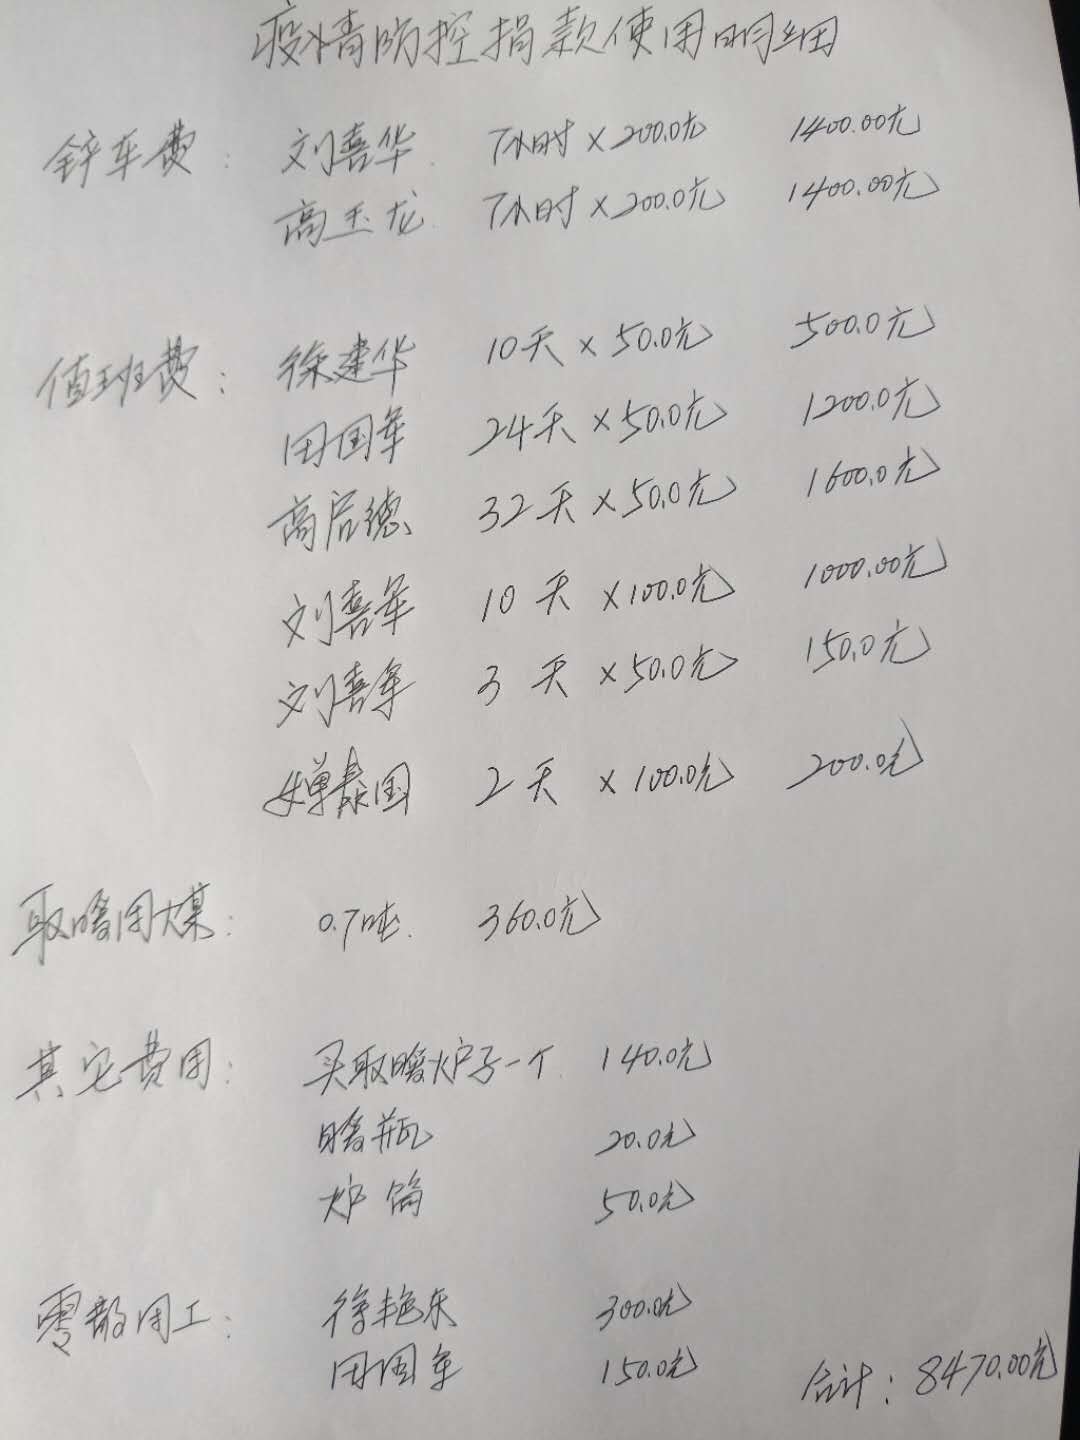 疫情防控捐款使用明细
铲车费: 刘喜华. 7小时×200.0元 1400.00元
高玉龙. 7小时×200.0元 1400.00元
值班费: 徐建华 10天×50.0元 500.0元
田国军 24天×50.0元 1200.0元
高启德 32天×50.0元 1600.0元
刘喜军 10天×100.0元 1000.00元
刘喜军 3天×50.0元 150.0元
国 2天×100.0元 200.0元
取暖用煤: 0.7吨. 360.0元
其它费用: 买取暖炉子一个. 140.0元
暖瓶 20.0元
炉筒 50.0元
零散用工: 徐艳东 300.0元
田国军 150.0元
合计: 8470.00元